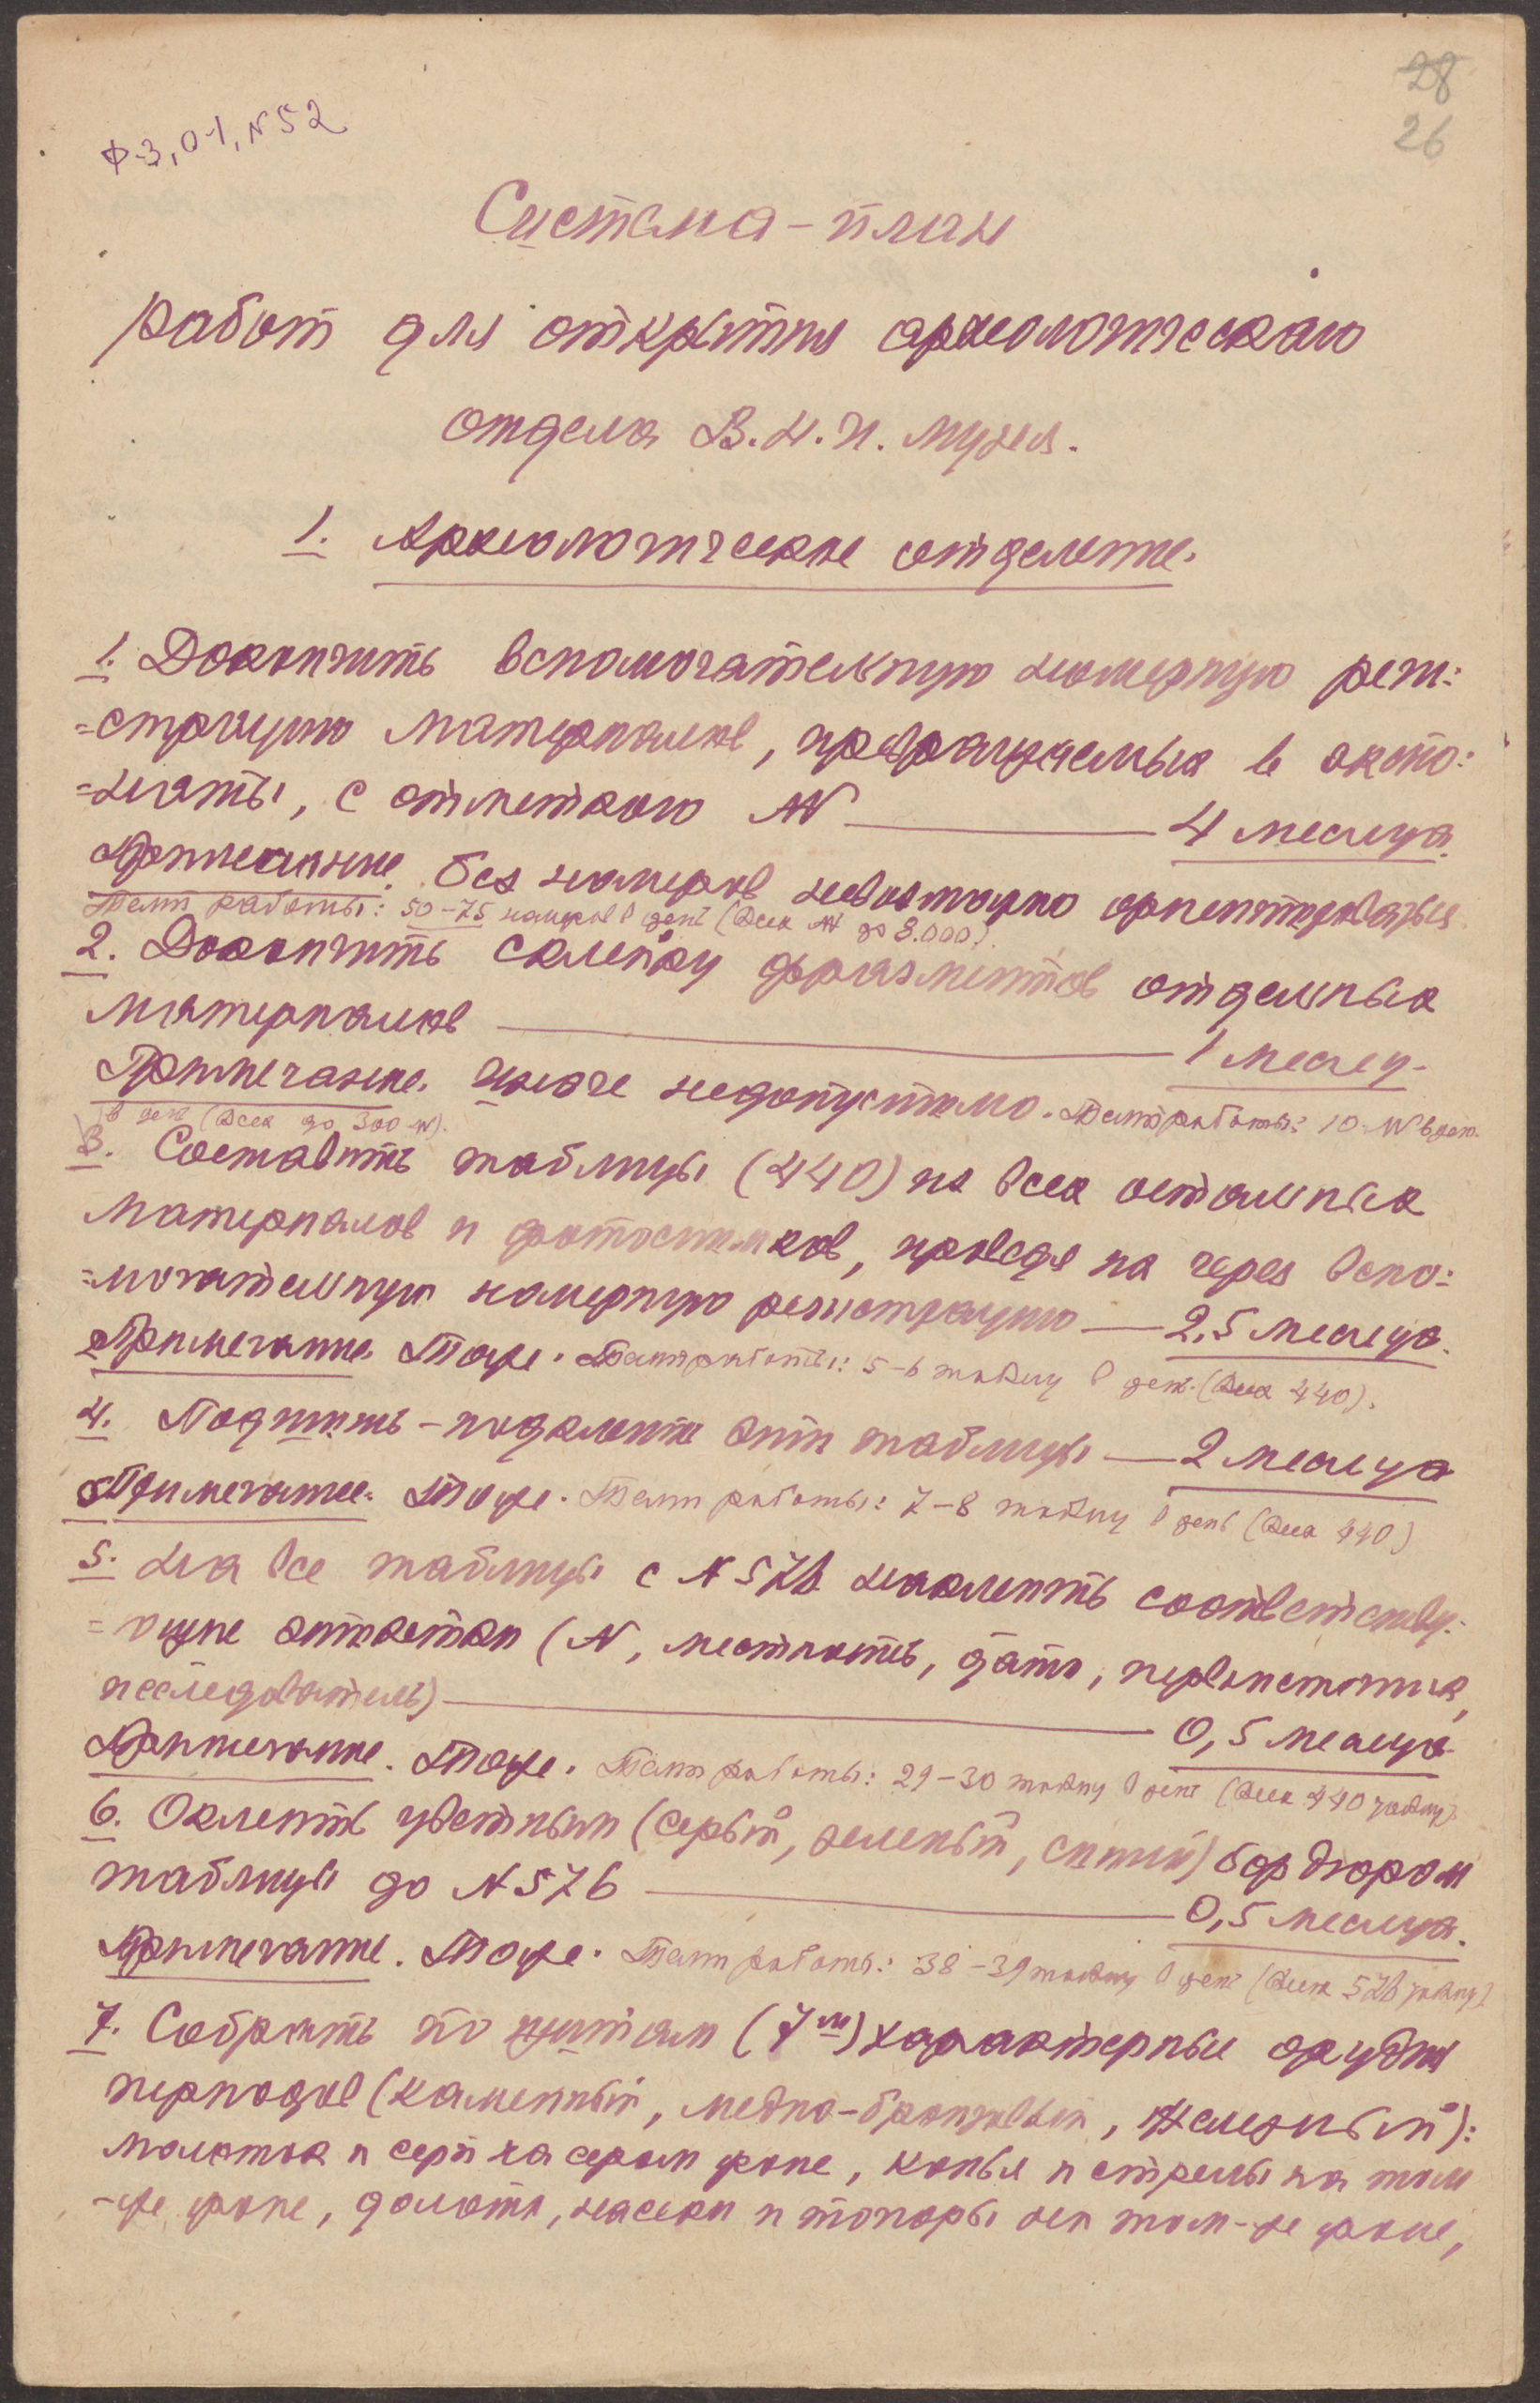 28
26
Ф-3, О-1, N 52
Система-план
работ для открытия археологическаго
отдела В.Н.И. музея.
1. Археологическое отделение.
1. Докончить вспомогательную номерную реги:
=страцию материалов, превращаемых в экспо:
=наты, с отметкою NN — 4 месяца.
Примечание. Без номеров невозможно ориентироваться.
Темп работы: 50-75 номеров в день (Всех NN до 8.000).
2. Докончить склейку фрагментов отдельных
материалов — 1 месяц.
Примечание. Иначе недопустимо. Темп работы: 10 NN в день.
в день (Всех до 300 NN).
3. Составить таблицы (440) из всех остальных
материалов и фотоснимков, проведя их через вспо:
=могательную номерную регистрацию — 2,5 месяца.
Примечание. Тоже. Темп работы: 5-6 таблиц в день. (Всех 440).
4. Подшить-подклеить эти таблицы — 2 месяца
Примечание. Тоже. Темп работы: 7-8 таблиц в день (Всех 440)
5. На все таблицы с N 576 наклеить соответству:
=ющие этикетки (N, местность, дата, первоисточник,
исследователь) — 0,5 месяца.
Примечание. Тоже. Темп работы: 29-30 таблиц в день (Всех 440 таблиц).
6. Оклеить цветным (серый, зеленый, синий) бордюром
таблицы до N 576 — 0,5 месяца.
Примечание. Тоже. Темп работы: 38-39 таблиц в день (Всех 576 таблиц).
7. Собрать по щитам (7м) характерные орудия
периодов (каменный, медно-бронзовый, железный):
молоток и серп на сером фоне, копья и стрелы на том
-же фоне, долота, и топоры на том-же фоне,